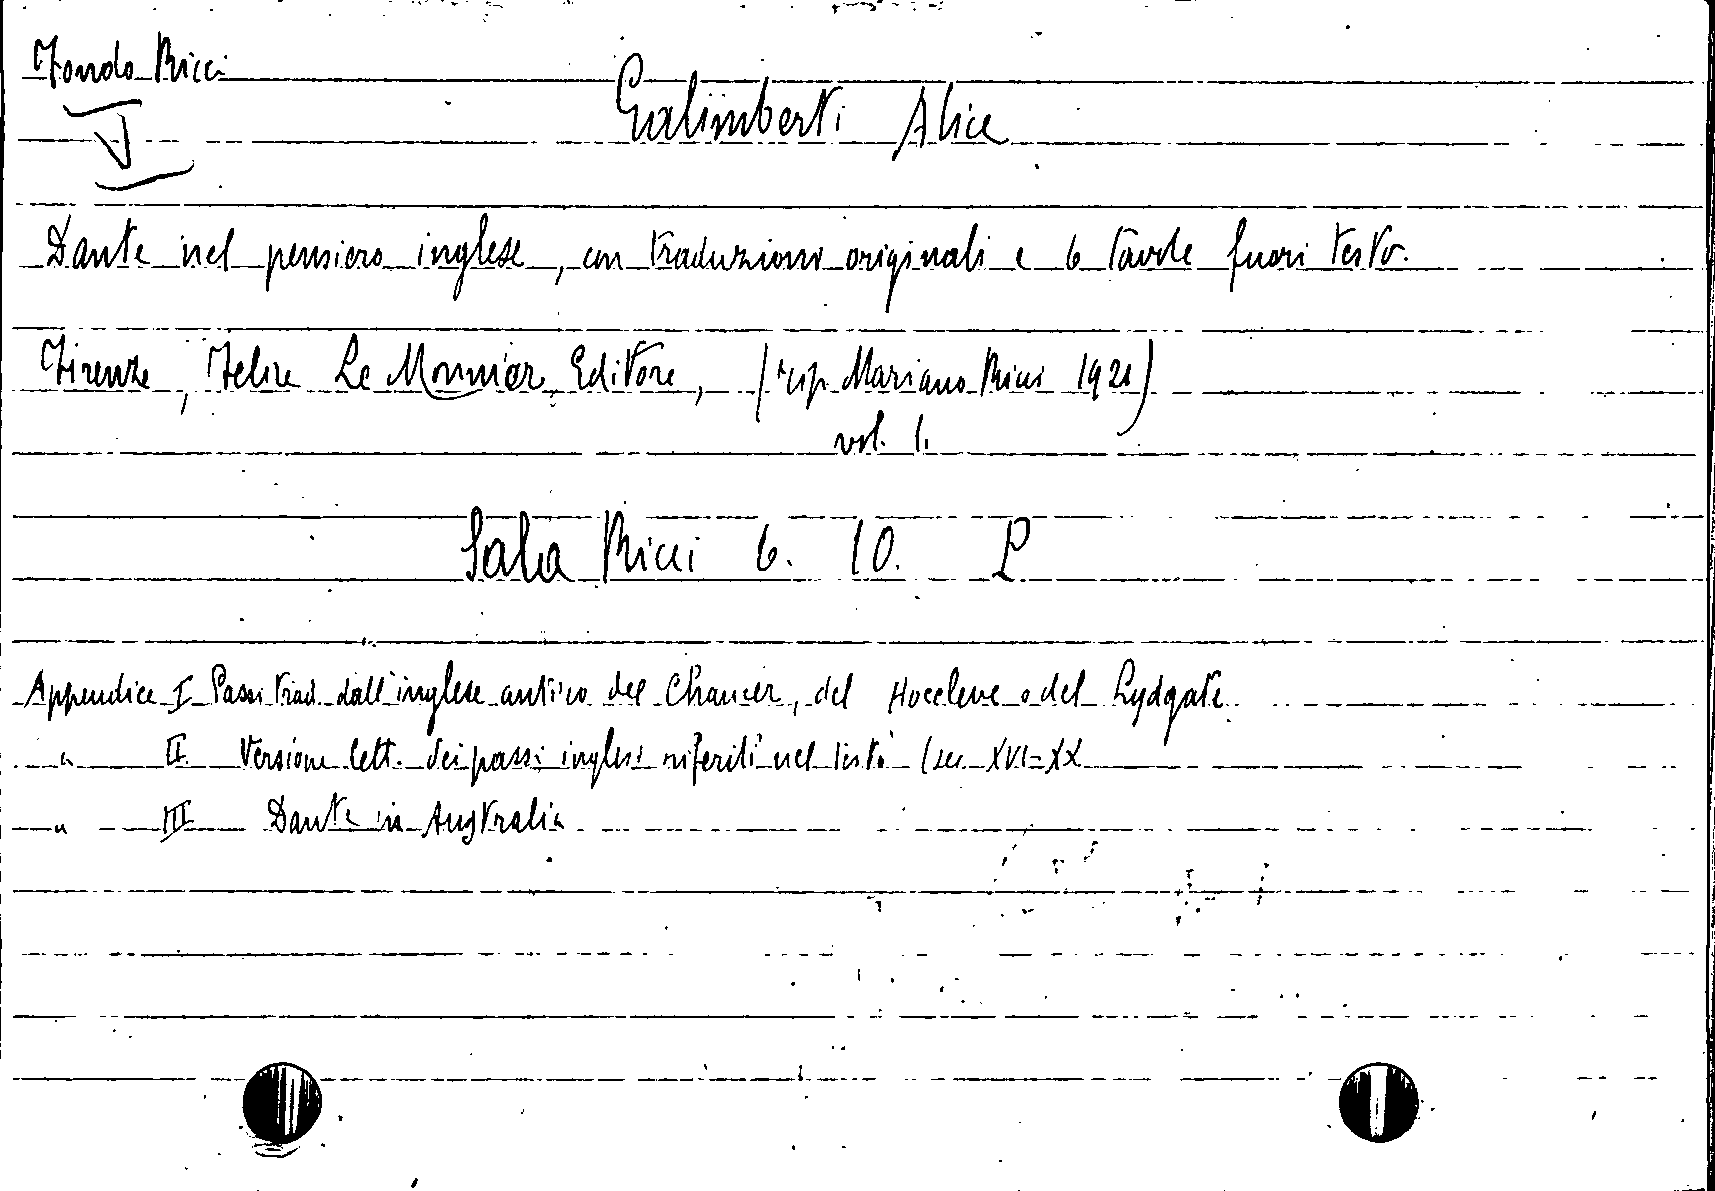 Fondo Ricci
Galimberti Alice
I
Dante nel pensiero inglese, con traduzioni originali e 6 tavole fuori testo.
Firenze, Felice Le Monnier Editore, (tip Mariano Ricci 1921)
vol. 1.
Sala Ricci 6. 10. P
Appendice I Passi trad. dall'inglese antico del Chaucer, del Hoccleve e del Lydgate
" II Versione lett. dei passi inglesi riferiti nel testo (sec XVI-XX
" III Dante in Australia